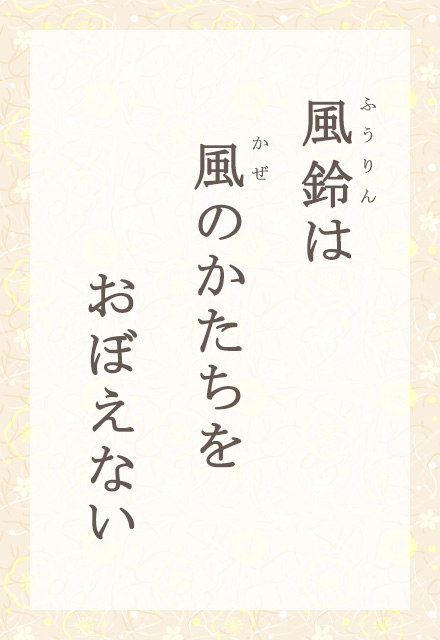 風鈴は
風のかたちを
おぼえない
ふうりん
かぜ